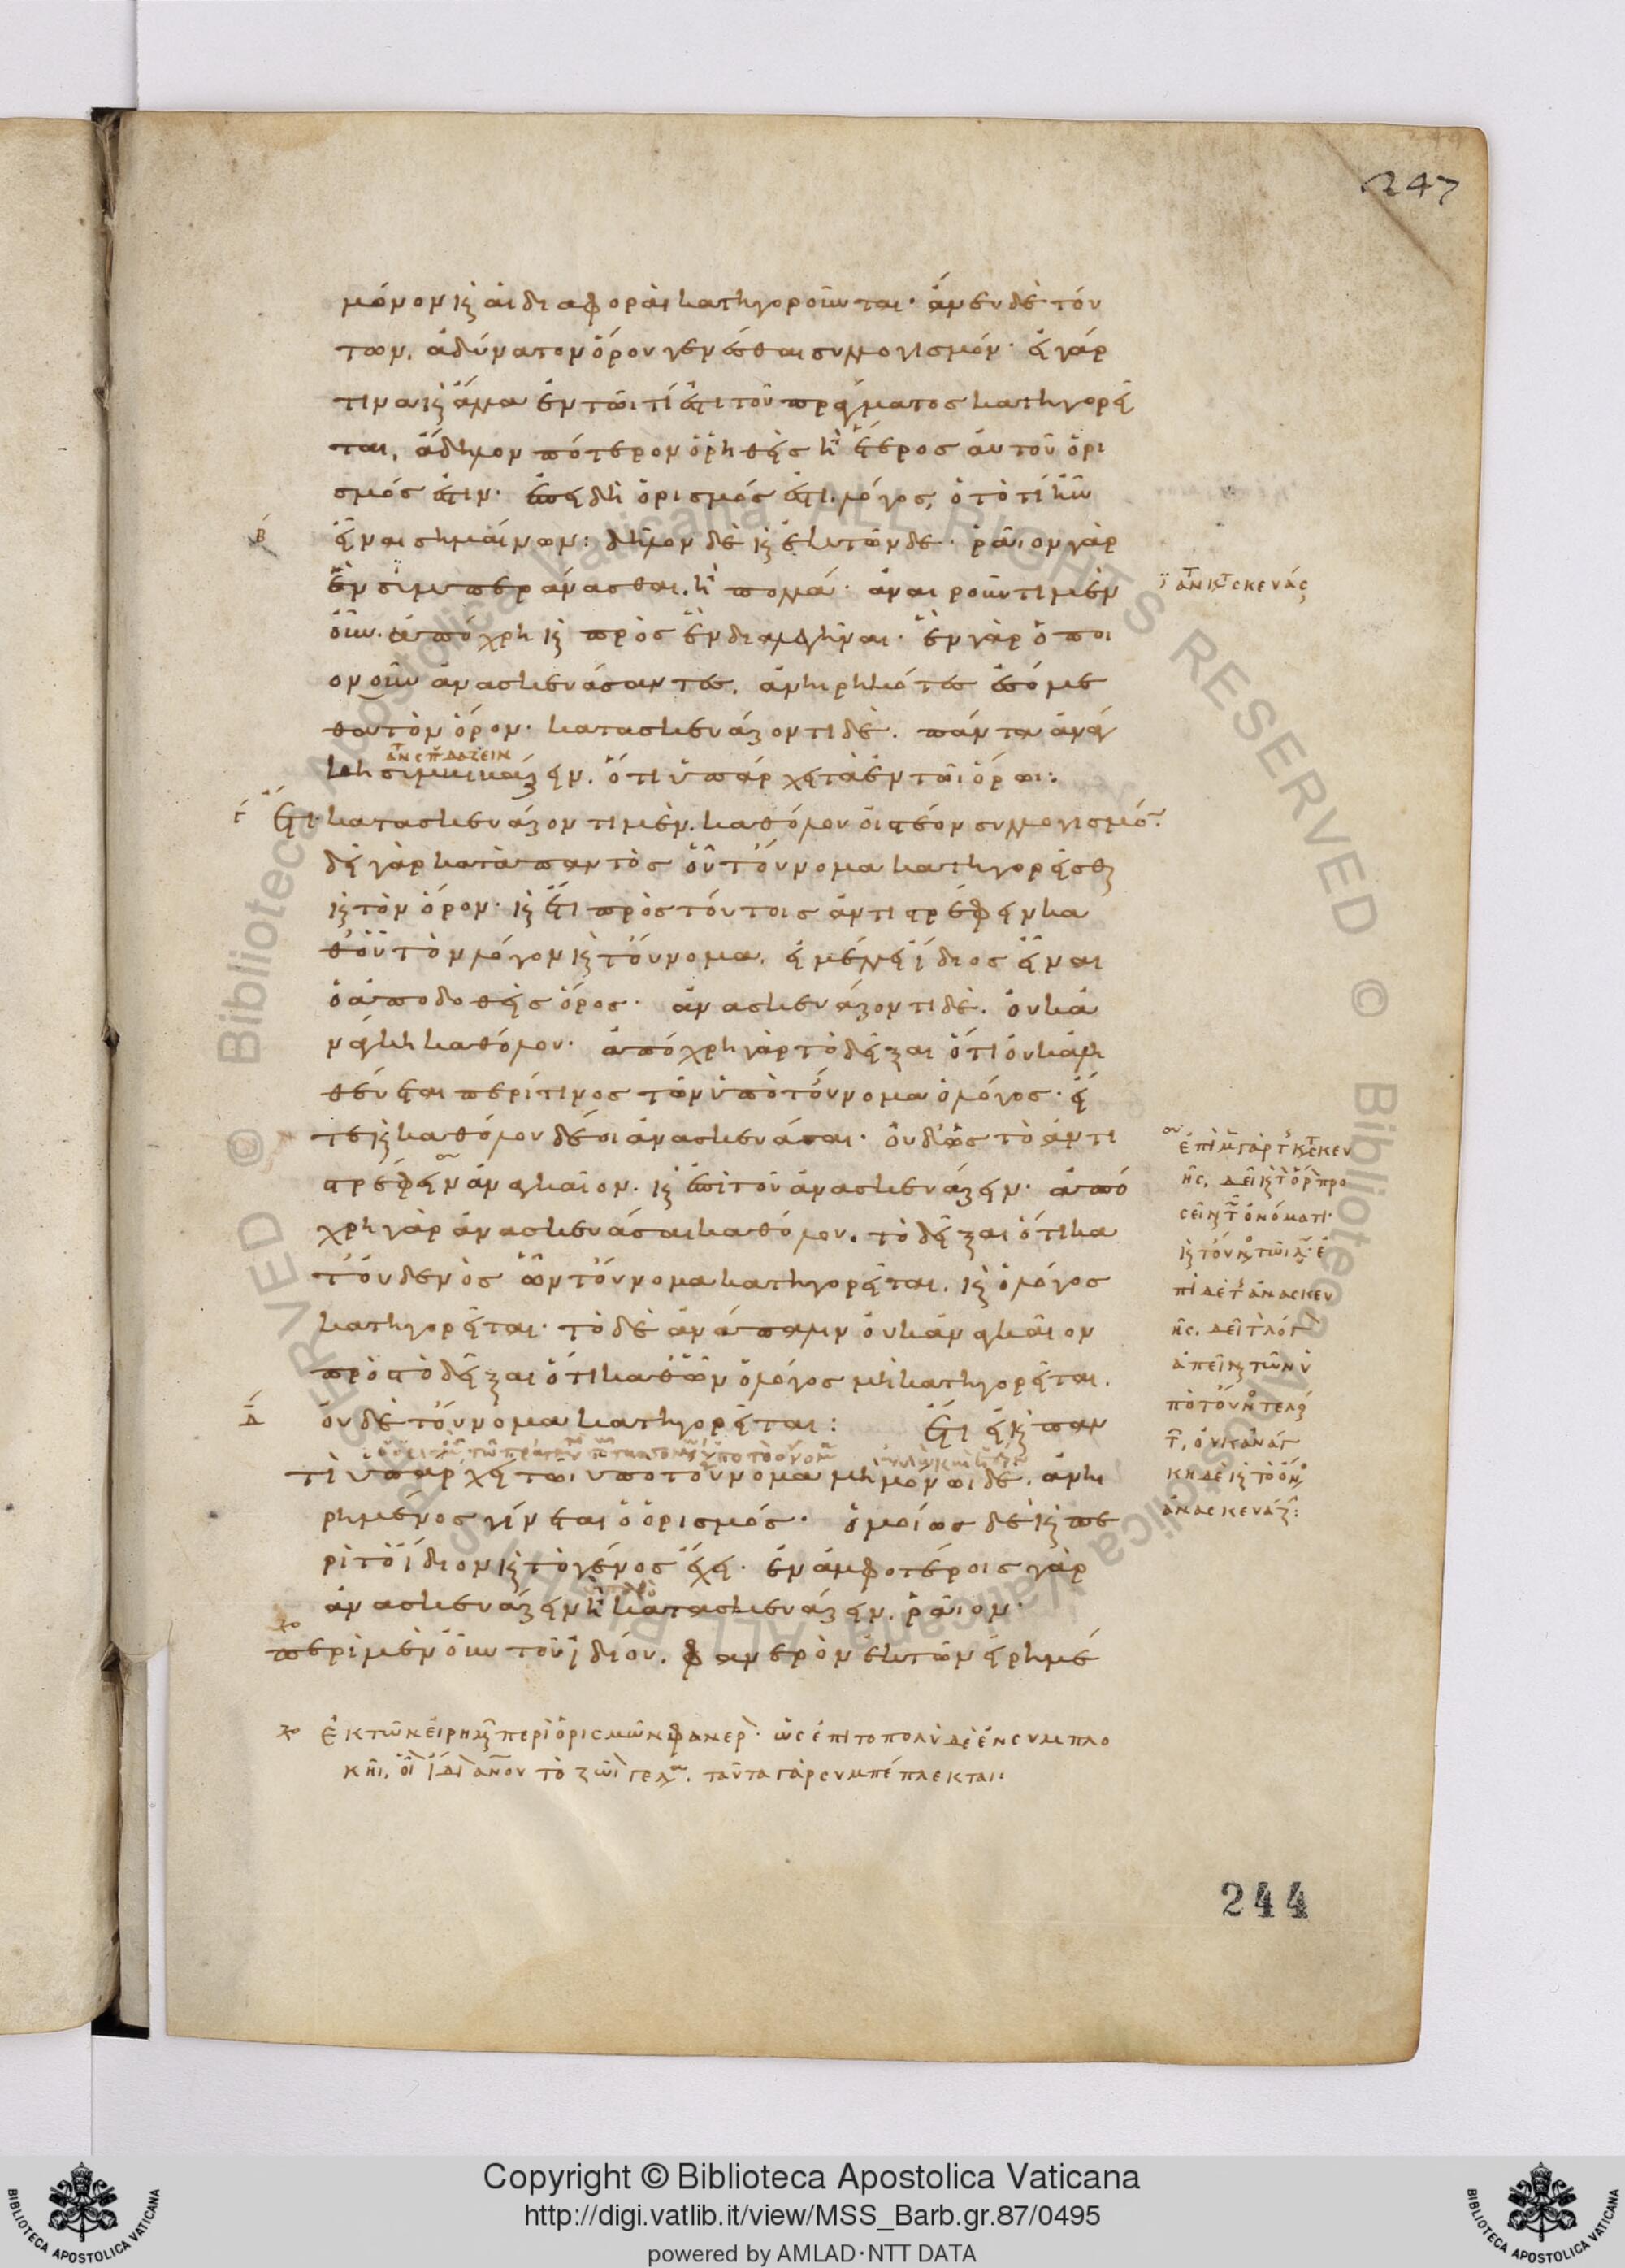 247
μόνον κ̀ αἱ διαφοραὶ κατηγοροῦνται· ἄνευ δὲ τού
των, ἀδύνατον ὅρου γενέσθαι συλλογισμόν· εἰ γάρ
τινα κ̀ ἄλλα ἐν τῶι τί ἐστι τοῦ πράγματος κατηγορεῖ
ται, ἄδηλον πότερον ὁ ῥηθεὶς ἢ ἕτερος αὐτοῦ ὁρι
σμός ἐστιν· ἐπειδὴ ὁρισμός ἐστι λόγος, ὁ τὸ τί ἦν
Β εἶναι σημαίνων: δῆλον δὲ κ̀ ἐκ τῶνδε· ῥᾶιον γὰρ
ἓν συμπεράνασθαι. ἢ πολλά· ἀναιροῦντι μὲν
οὖν. ἀπόχρη κ̀ πρὸς ἓν διαλεχθῆναι· ἓν γὰρ ὁποι
ονοῦν ἀνασκευάσαντες, ἀνηιρηκότες ἐσόμε
θα τὸν ὅρον· κατασκευάζοντι δὲ. πάντα ἀνάγ
κη συμβιβάζειν. ὅτι ὑπάρχει τὰ ἐν τῶι ὅρωι:
Γ ἔτι κατασκευάζοντι μὲν. καθόλου οἰστέον συλλογισμό̅.
δεῖ γὰρ κατὰ παντὸς οὗ τοὔνομα κατηγορεῖσθαι
κ̀ τὸν ὅρον· κ̀ ἔτι πρὸς τούτοις ἀντιστρέφειν κα
θ' οὗ τὸν λόγον κ̀ τοὔνομα. εἰ μέλλει ἴδιος εἶναι
ὁ ἀποδοθεὶς ὅρος· ἀνασκευάζοντι δὲ. οὐκ ἀ
νάγκη καθόλου· ἀπόχρη γὰρ τὸ δεῖξαι ὅτι οὐκ ἀλη
θεύεται περί τινος τῶν ὑπὸ τοὔνομα ὁ λόγος· εἴ
τε κ̀ καθόλου δέοι ἀνασκευάσαι· οὐδ' ὣς τὸ ἀντι
στρέφειν ἀναγκαῖον. κ̀ ἐπὶ τοῦ ἀνασκευάζειν· ἀπό
χρη γὰρ ἀνασκευάσαι καθόλου. τὸ δεῖξαι ὅτι κα
τ' οὐδενὸς ὧν τοὔνομα κατηγορεῖται. κ̀ ὁ λόγος
κατηγορεῖται· τὸ δὲ ἀνάπαλιν οὐκ ἀναγκαῖον
πρὸς τὸ δεῖξαι ὅτι καθ' ὧν ὁ λόγος μὴ κατηγορεῖται.
Δ οὐδὲ τοὔνομα κατηγορεῖται: ἔτι εἰ κ̀ παν
τὶ ὑπάρχει τῶι ὑπὸ τοὔνομα μὴ μόνωι δὲ. ἀνηι
ρημένος γίνεται ὁ ὁρισμός· ὁμοίως δὲ κ̀ πε
ρὶ τὸ ἴδιον κ̀ τὸ γένος ἔχει· ἐν ἀμφοτέροις γὰρ
ἀνασκευάζειν ἢ κατασκευάζειν. ῥᾶιον·
περὶ μὲν οὖν τοῦ ἰδίου. φανερὸν ἐκ τῶν εἰρημέ
ἐκ τῶν εἰρημ περὶ ὁρισμῶν φανερ· ὡς ἐπιτοπολὺ δὲ ἐν συμπλο
κῆι. οἷ ἴδι ἀνου τὸ ζῶι γελ. ταῦτα γὰρ συμπέπλεκται:
244
Copyright © Biblioteca Apostolica Vaticana
http://digi.vatlib.it/view/MSS_Barb.gr.87/0495
powered by AMLAD·NTT DATA